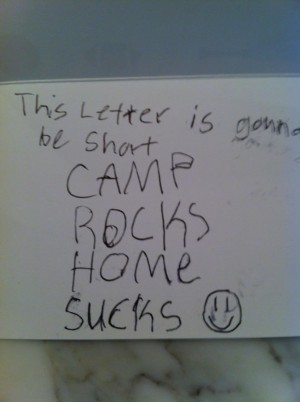 This Letter is gonna
be Short
CAMP
ROCKS
HOMe
SUCKS